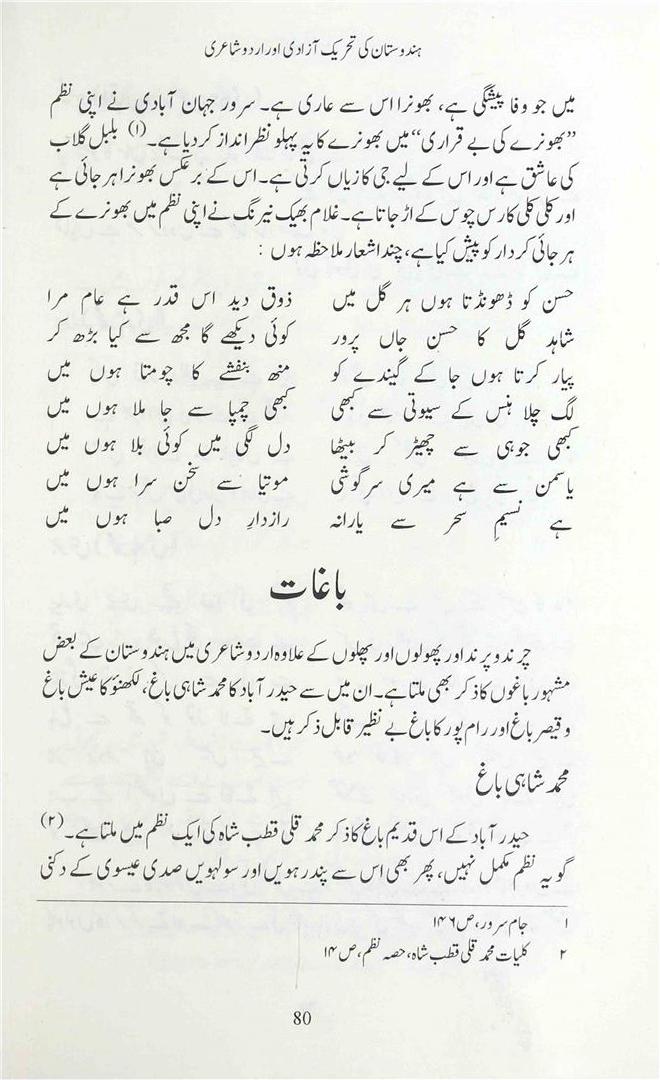 ہندوستان کی تحریک آزادی اور اردو شاعری
میں جو وفا پیشگی ہے، بھونرا اس سے عاری ہے۔ سرور جہان آبادی نے اپنی نظم
”بھونرے کی بے قراری“ میں بھونرے کا یہ پہلو نظر انداز کر دیا ہے۔(۱) بلبل گلاب
کی عاشق ہے اور اس کے لیے جی کا زیاں کرتی ہے۔ اس کے برعکس بھونرا ہرجائی ہے
اور کلی کلی کا رس چوس کے اڑ جاتا ہے۔ غلام بھیک نیرنگ نے اپنی نظم میں بھونرے کے
ہرجائی کردار کو پیش کیا ہے، چند اشعار ملاحظہ ہوں :
حسن کو ڈھونڈتا ہوں ہر گل میں ذوق دید اس قدر ہے عام مرا
شاہد گل کا حسن جاں پرور کوئی دیکھے گا مجھ سے کیا بڑھ کر
پیار کرتا ہوں جا کے گیندے کو منھ بنفشے کا چومتا ہوں میں
لگ چلا ہنس کے سیوتی سے کبھی کبھی چمپا سے جا ملا ہوں میں
کبھی جوہی سے چھیڑ کر بیٹھا دل لگی میں کوئی بلا ہوں میں
یاسمن سے ہے میری سرگوشی موتیا سے سخن سرا ہوں میں
ہے نسیمِ سحر سے یارانہ رازدارِ دل صبا ہوں میں
باغات
چرند و پرند اور پھولوں اور پھلوں کے علاوہ اردو شاعری میں ہندوستان کے بعض
مشہور باغوں کا ذکر بھی ملتا ہے۔ ان میں سے حیدر آباد کا محمد شاہی باغ، لکھنؤ کا عیش باغ
و قیصر باغ اور رام پور کا باغ بے نظیر قابل ذکر ہیں۔
محمد شاہی باغ
حیدر آباد کے اس قدیم باغ کا ذکر محمد قلی قطب شاہ کی ایک نظم میں ملتا ہے۔(۲)
گو یہ نظم مکمل نہیں، پھر بھی اس سے پندرھویں اور سولہویں صدی عیسوی کے دکنی
۱ جام سرور، ص ۱۴۶
۲ کلیات محمد قلی قطب شاہ، حصہ نظم، ص ۱۴
80